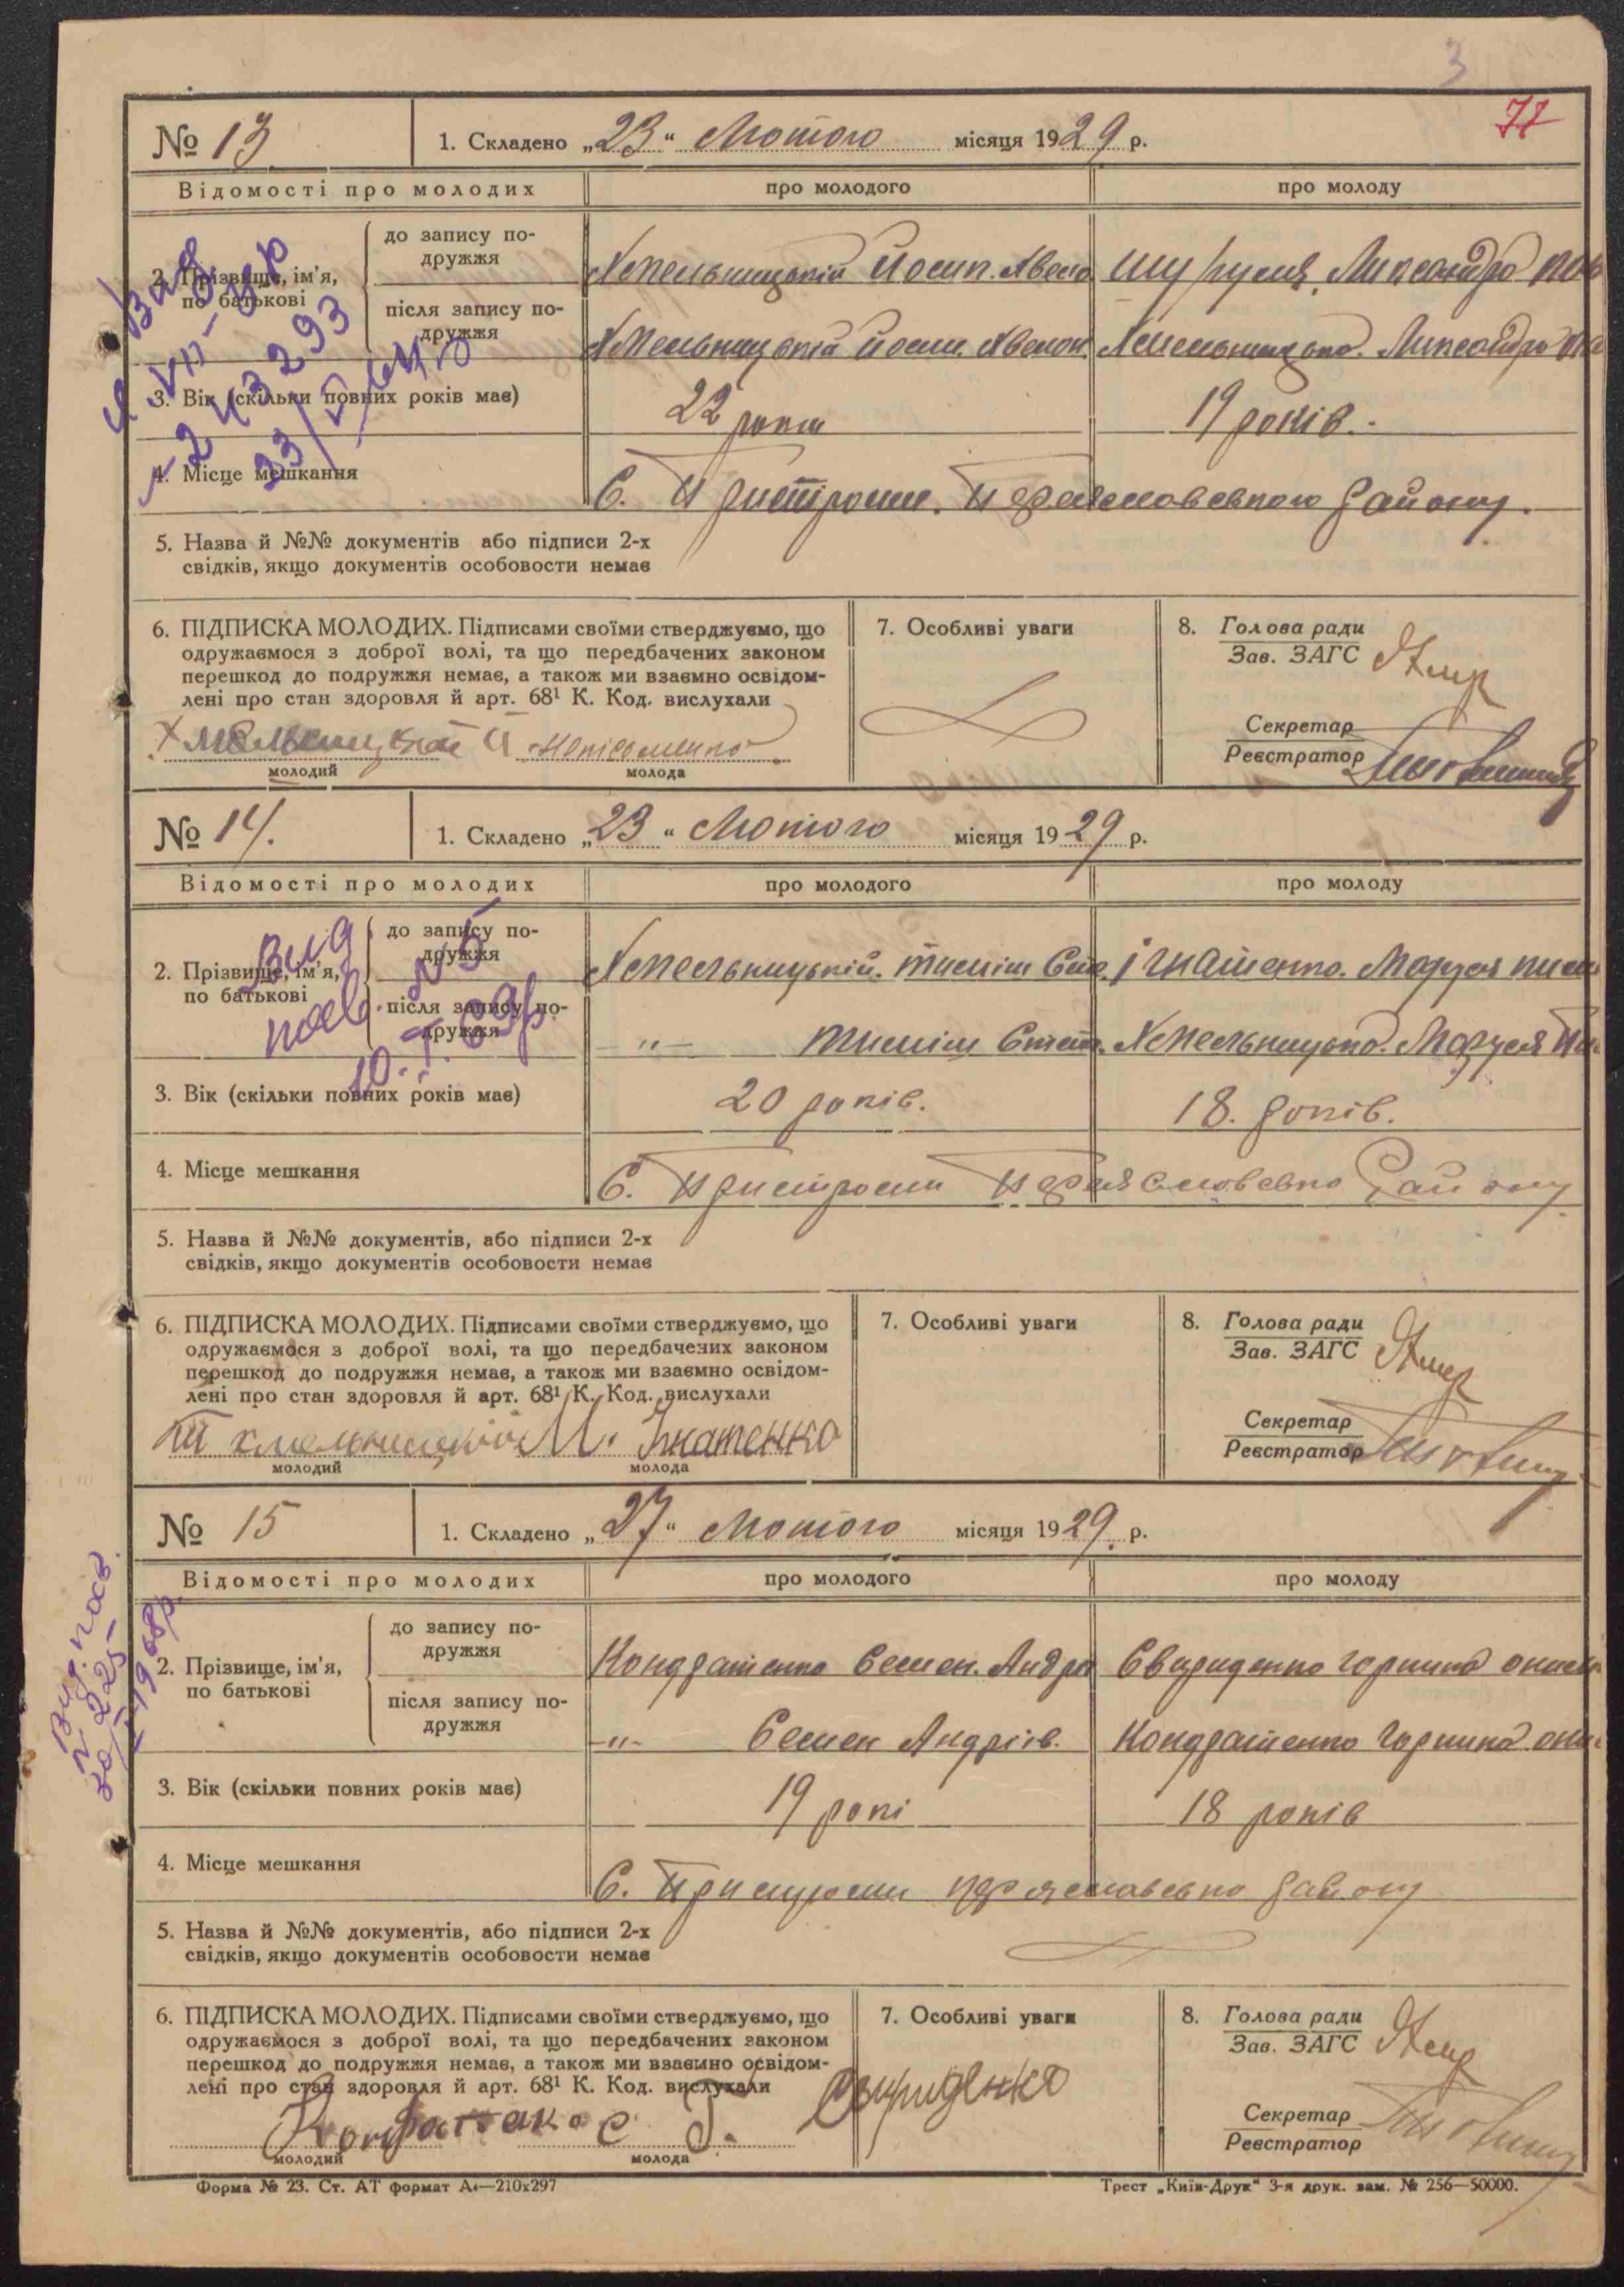 3
77
№ 13 1. Складено „23“ Лютого місяця 1929 р.
Відомості про молодих про молодого про молоду
2. Прізвище, ім’я, по батькові
до запису подружжя Хмельницький Йосип
після запису подружжя Хмельницький Йосип
3. Вік (скільки повних років має) 22 роки 19 років.
4. Місце мешкання С. Пристроми. району.
5. Назва й №№ документів або підписи 2-х
свідків, якщо документів особовости немає
6. ПІДПИСКА МОЛОДИХ. Підписами своїми стверджуємо, що
одружаємося з доброї волі, та що передбачених законом
перешкод до подружжя немає, а також ми взаємно освідом-
лені про стан здоровля й арт. 68¹ К. Код. вислухали
Хмельницкий Й
молодий молода
7. Особливі уваги
8. Голова ради
Зав. ЗАГС
Секретар
Реєстратор
№ 14. 1. Складено „23“ Лютого місяця 1929 р.
Відомості про молодих про молодого про молоду
Вид
2. Прізвище, ім’я, по батькові
до запису подружжя Хмельницький. Ігнатенко. Маруся
після запису подружжя —"— Хмельницька. Маруся
№ 5
3. Вік (скільки повних років має) 20 років. 18. років.
4. Місце мешкання С. Пристроми району
5. Назва й №№ документів, або підписи 2-х
свідків, якщо документів особовости немає
6. ПІДПИСКА МОЛОДИХ. Підписами своїми стверджуємо, що
одружаємося з доброї волі, та що передбачених законом
перешкод до подружжя немає, а також ми взаємно освідом-
лені про стан здоровля й арт. 68¹ К. Код. вислухали
М. Ігнатенко
молодий молода
7. Особливі уваги
8. Голова ради
Зав. ЗАГС
Секретар
Реєстратор
№ 15 1. Складено „27“ Лютого місяця 1929 р.
Відомості про молодих про молодого про молоду
Вид. посв.
№ 225
2. Прізвище, ім’я, по батькові
до запису подружжя Кондратенко Семен. Свириденко горпина
після запису подружжя —"— Семен Андрі\в. Кондратенко горпина
3. Вік (скільки повних років має) 19 рокі 18 років
4. Місце мешкання С. району
5. Назва й №№ документів, або підписи 2-х
свідків, якщо документів особовости немає
6. ПІДПИСКА МОЛОДИХ. Підписами своїми стверджуємо, що
одружаємося з доброї волі, та що передбачених законом
перешкод до подружжя немає, а також ми взаємно освідом-
лені про стан здоровля й арт. 68¹ К. Код. вислухали
Г. Свириденко
молодий молода
7. Особливі уваги
8. Голова ради
Зав. ЗАГС
Секретар
Реєстратор
Форма № 23. Ст. АТ формат А₄—210х297 Трест „Київ-Друк“ 3-я друк. зам. № 256—50000.